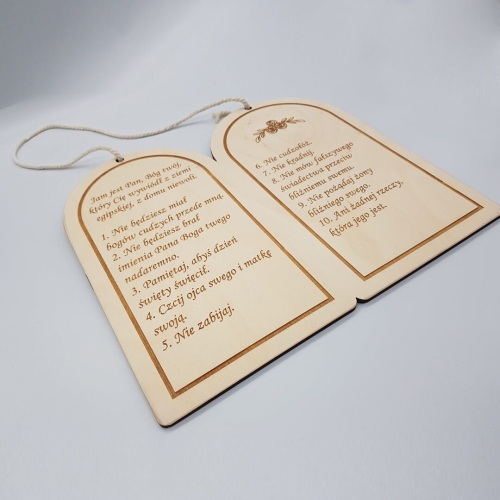 Jam jest Pan, Bóg twój,
który Cię wywiódł z ziemi
egipskiej, z domu niewoli.
1. Nie będziesz miał
bogów cudzych przede mną.
2. Nie będziesz brał
imienia Pana Boga twego
nadaremno.
3. Pamiętaj, abyś dzień
święty święcił.
4. Czcij ojca swego i matkę
swoją.
5. Nie zabijaj.
6. Nie cudzołóż.
7. Nie kradnij.
8. Nie mów fałszywego
świadectwa przeciw
bliźniemu swemu.
9. Nie pożądaj żony
bliźniego swego.
10. Ani żadnej rzeczy,
która jego jest.